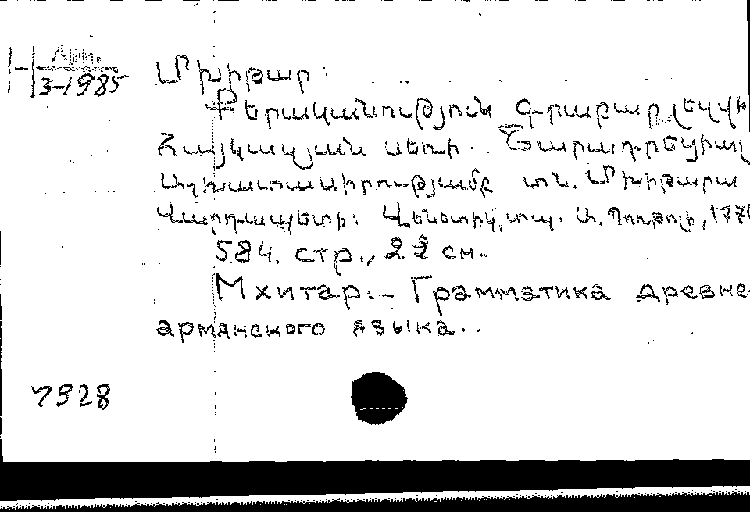 Արխ.
Н 3-1985
Մխիթար.
Քերականություն գրաբար լեզվի
Հայկազյան սեռի.. Շարադրեցիալ
աշխատասիրությամբ տն. Մխիթարա
Վարդապետի: Վենետիկ, տպ. Ա.
584. стр., 22 см.
Мхитар.- Грамматика древне-
армянского языка..
7328